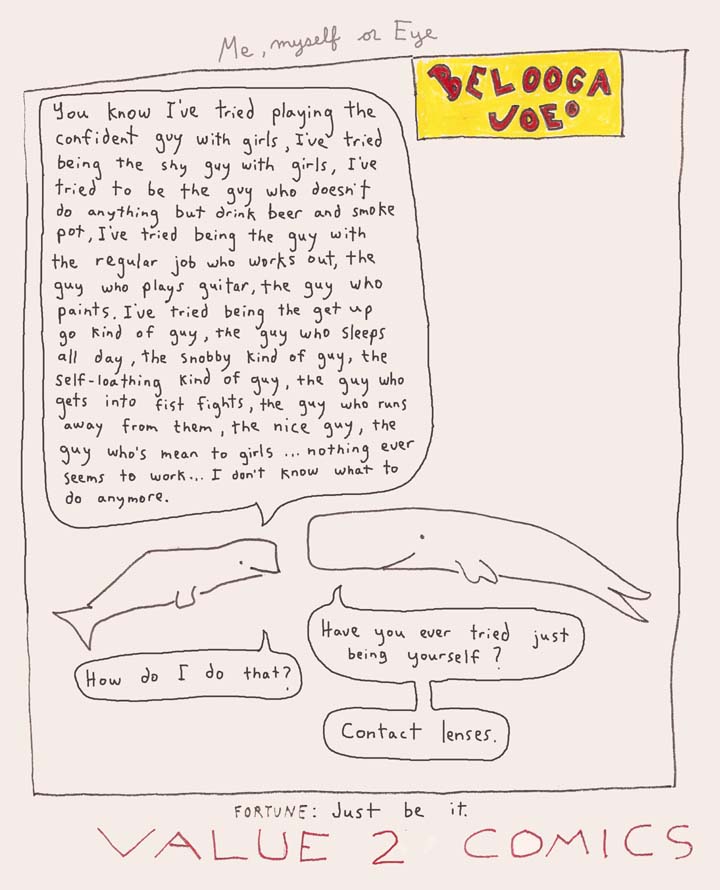 Me, myself or Eye
BELOOGA
JOE
You know I've tried playing the
confident guy with girls, I've tried
being the shy guy with girls, I've
tried to be the guy who doesn't
do anything but drink beer and smoke
pot, I've tried being the guy with
the regular job who works out, the
guy who plays guitar, the guy who
paints. I've tried being the get up
go kind of guy, the guy who sleeps
all day, the snobby kind of guy, the
self-loathing kind of guy, the guy who
gets into fist fights, the guy who runs
away from them, the nice guy, the
guy who's mean to girls ... nothing ever
seems to work... I don't know what to
do anymore.
Have you ever tried just
being yourself?
How do I do that?
Contact lenses.
FORTUNE: Just be it.
VALUE 2 COMICS